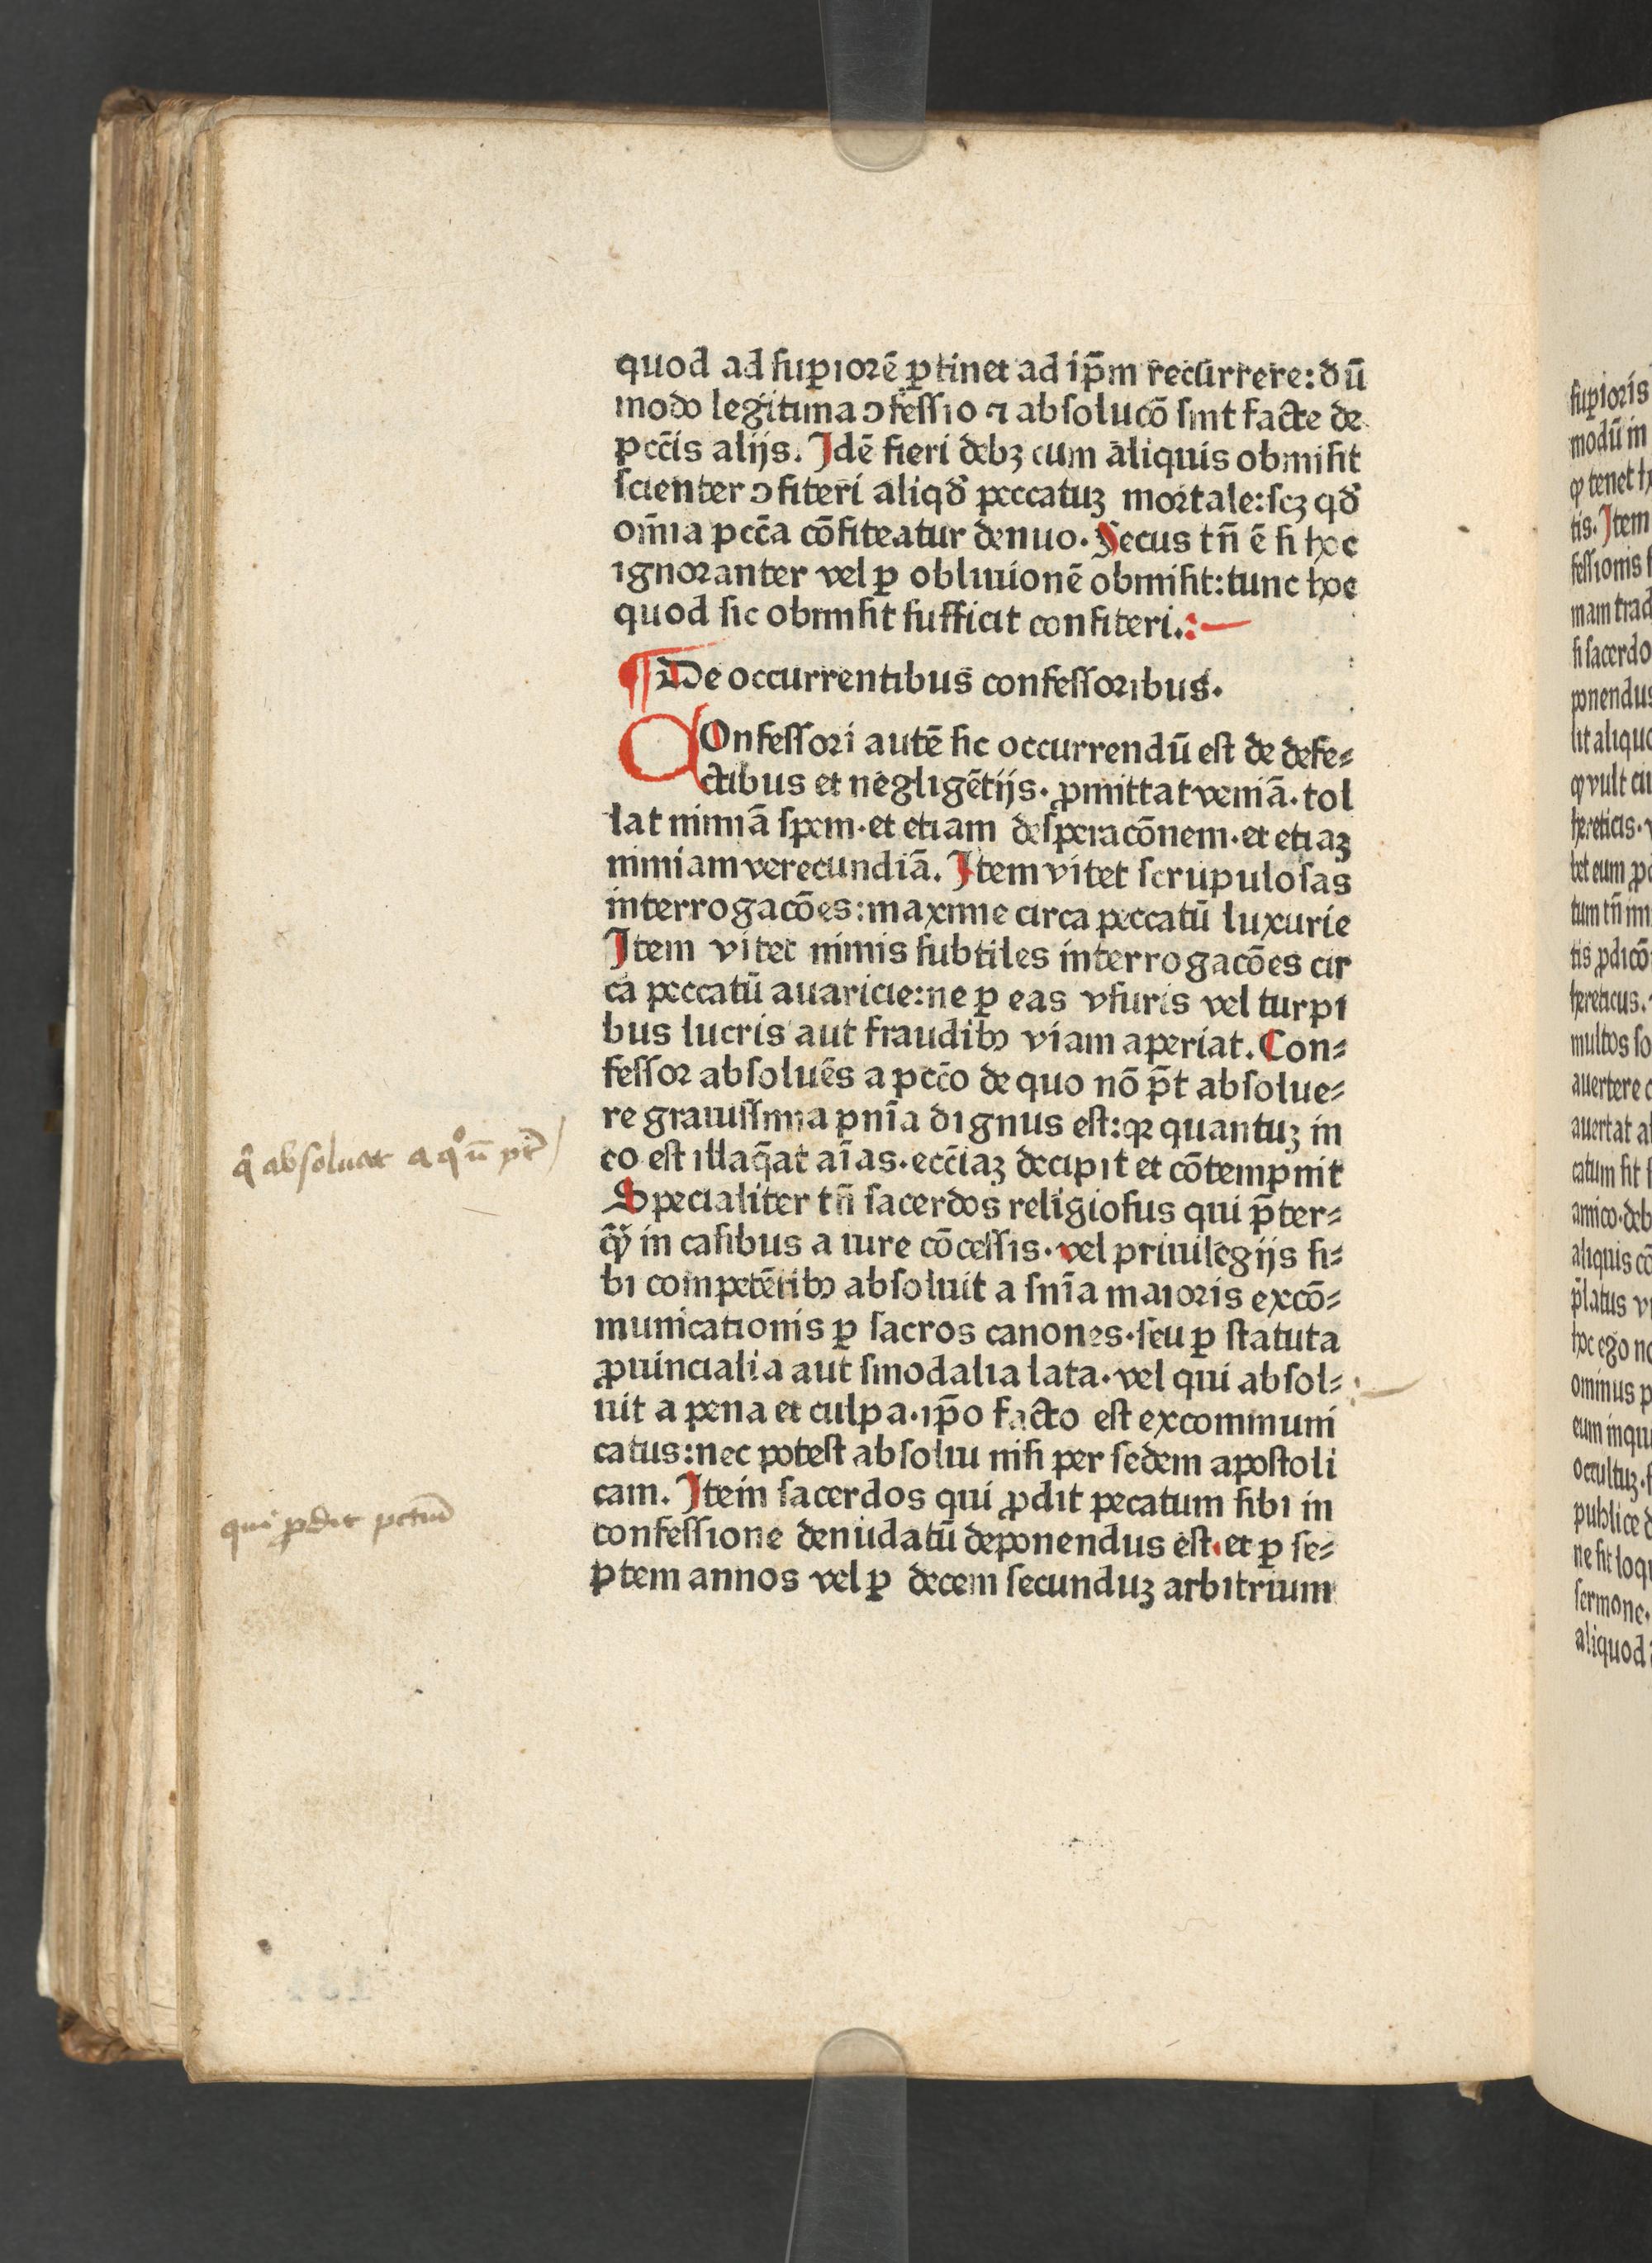 quod ad suꝑiorē ꝑtinet ad ip̄m recurrere: dū
modo legitima ꝯfessio ⁊ absolucō sint facte de
pcc̄is alijs. Idē fieri debꝫ cum aliquis obmisit
scienter ꝯfiteri aliqd̕ peccatuꝫ mortale: scꝫ qd̕
om̄ia pcc̄a cōfiteatur denuo. Secus tn̄ ē si hoc
ignoranter vel ꝑ obliuionē obmisit: tunc hoc
quod sic obmisit sufficit confiteri.:—
¶ De occurrentibus confessoribus.
COnfessori autē sic occurrendū est de defe⸗
ctibus et negligētijs. ꝓmittat veniā. tol
lat nimiā spem. et etiam desperacōnem. et etiaꝫ
nimiam verecundiā. Item vitet scrupulosas
interrogacōes: maxime circa peccatū luxurie
Item vitet nimis subtiles interrogacōes cir
ca peccatū auaricie: ne ꝑ eas vsuris vel turpi
bus lucris aut fraudibꝰ viam aperiat. Con⸗
fessor absoluēs a pcc̄o de quo nō p̄t absolue⸗
re grauissima pn̄ia dignus est: qꝛ quantuꝫ in
eo est illaq̄at aīas. ecc̄iaꝫ decipit et cōtempnit
Specialiter tn̄ sacerdos religiosus qui p̄ter⸗
qͣꝫ in casibus a iure cōcessis. vel priuilegijs si⸗
bi competētibꝰ absoluit a sn̄ia maioris excō⸗
municationis ꝑ sacros canones. seu ꝑ statuta
ꝓuincialia aut sinodalia lata. vel qui absol⸗
uit a pena et culpa. ip̄o facto est excommuni
catus: nec potest absolui nisi per sedem apostoli
cam. Item sacerdos qui ꝓdit pecatum sibi in
confessione denudatū deponendus est. et ꝑ se⸗
ptem annos vel ꝑ decem secunduꝫ arbitrium
qͥ absoluat a qͦ nō pt̄
qui ꝓdit pctum̄
suꝑioris
modū in
tenet
tis. Item
mam trad
si sacerdo
ponendus
lit aliquo
vult
hereticis.
let eum
tum tn̄
tis ꝓdicō
hereticus.
multos so
auertere
auertat
catum sit
amico. deb
aliquis cō
p̄latus
hoc ego
ominus
eum inqui
occultuꝫ.
publice
ne sit loq
sermone.
aliquod